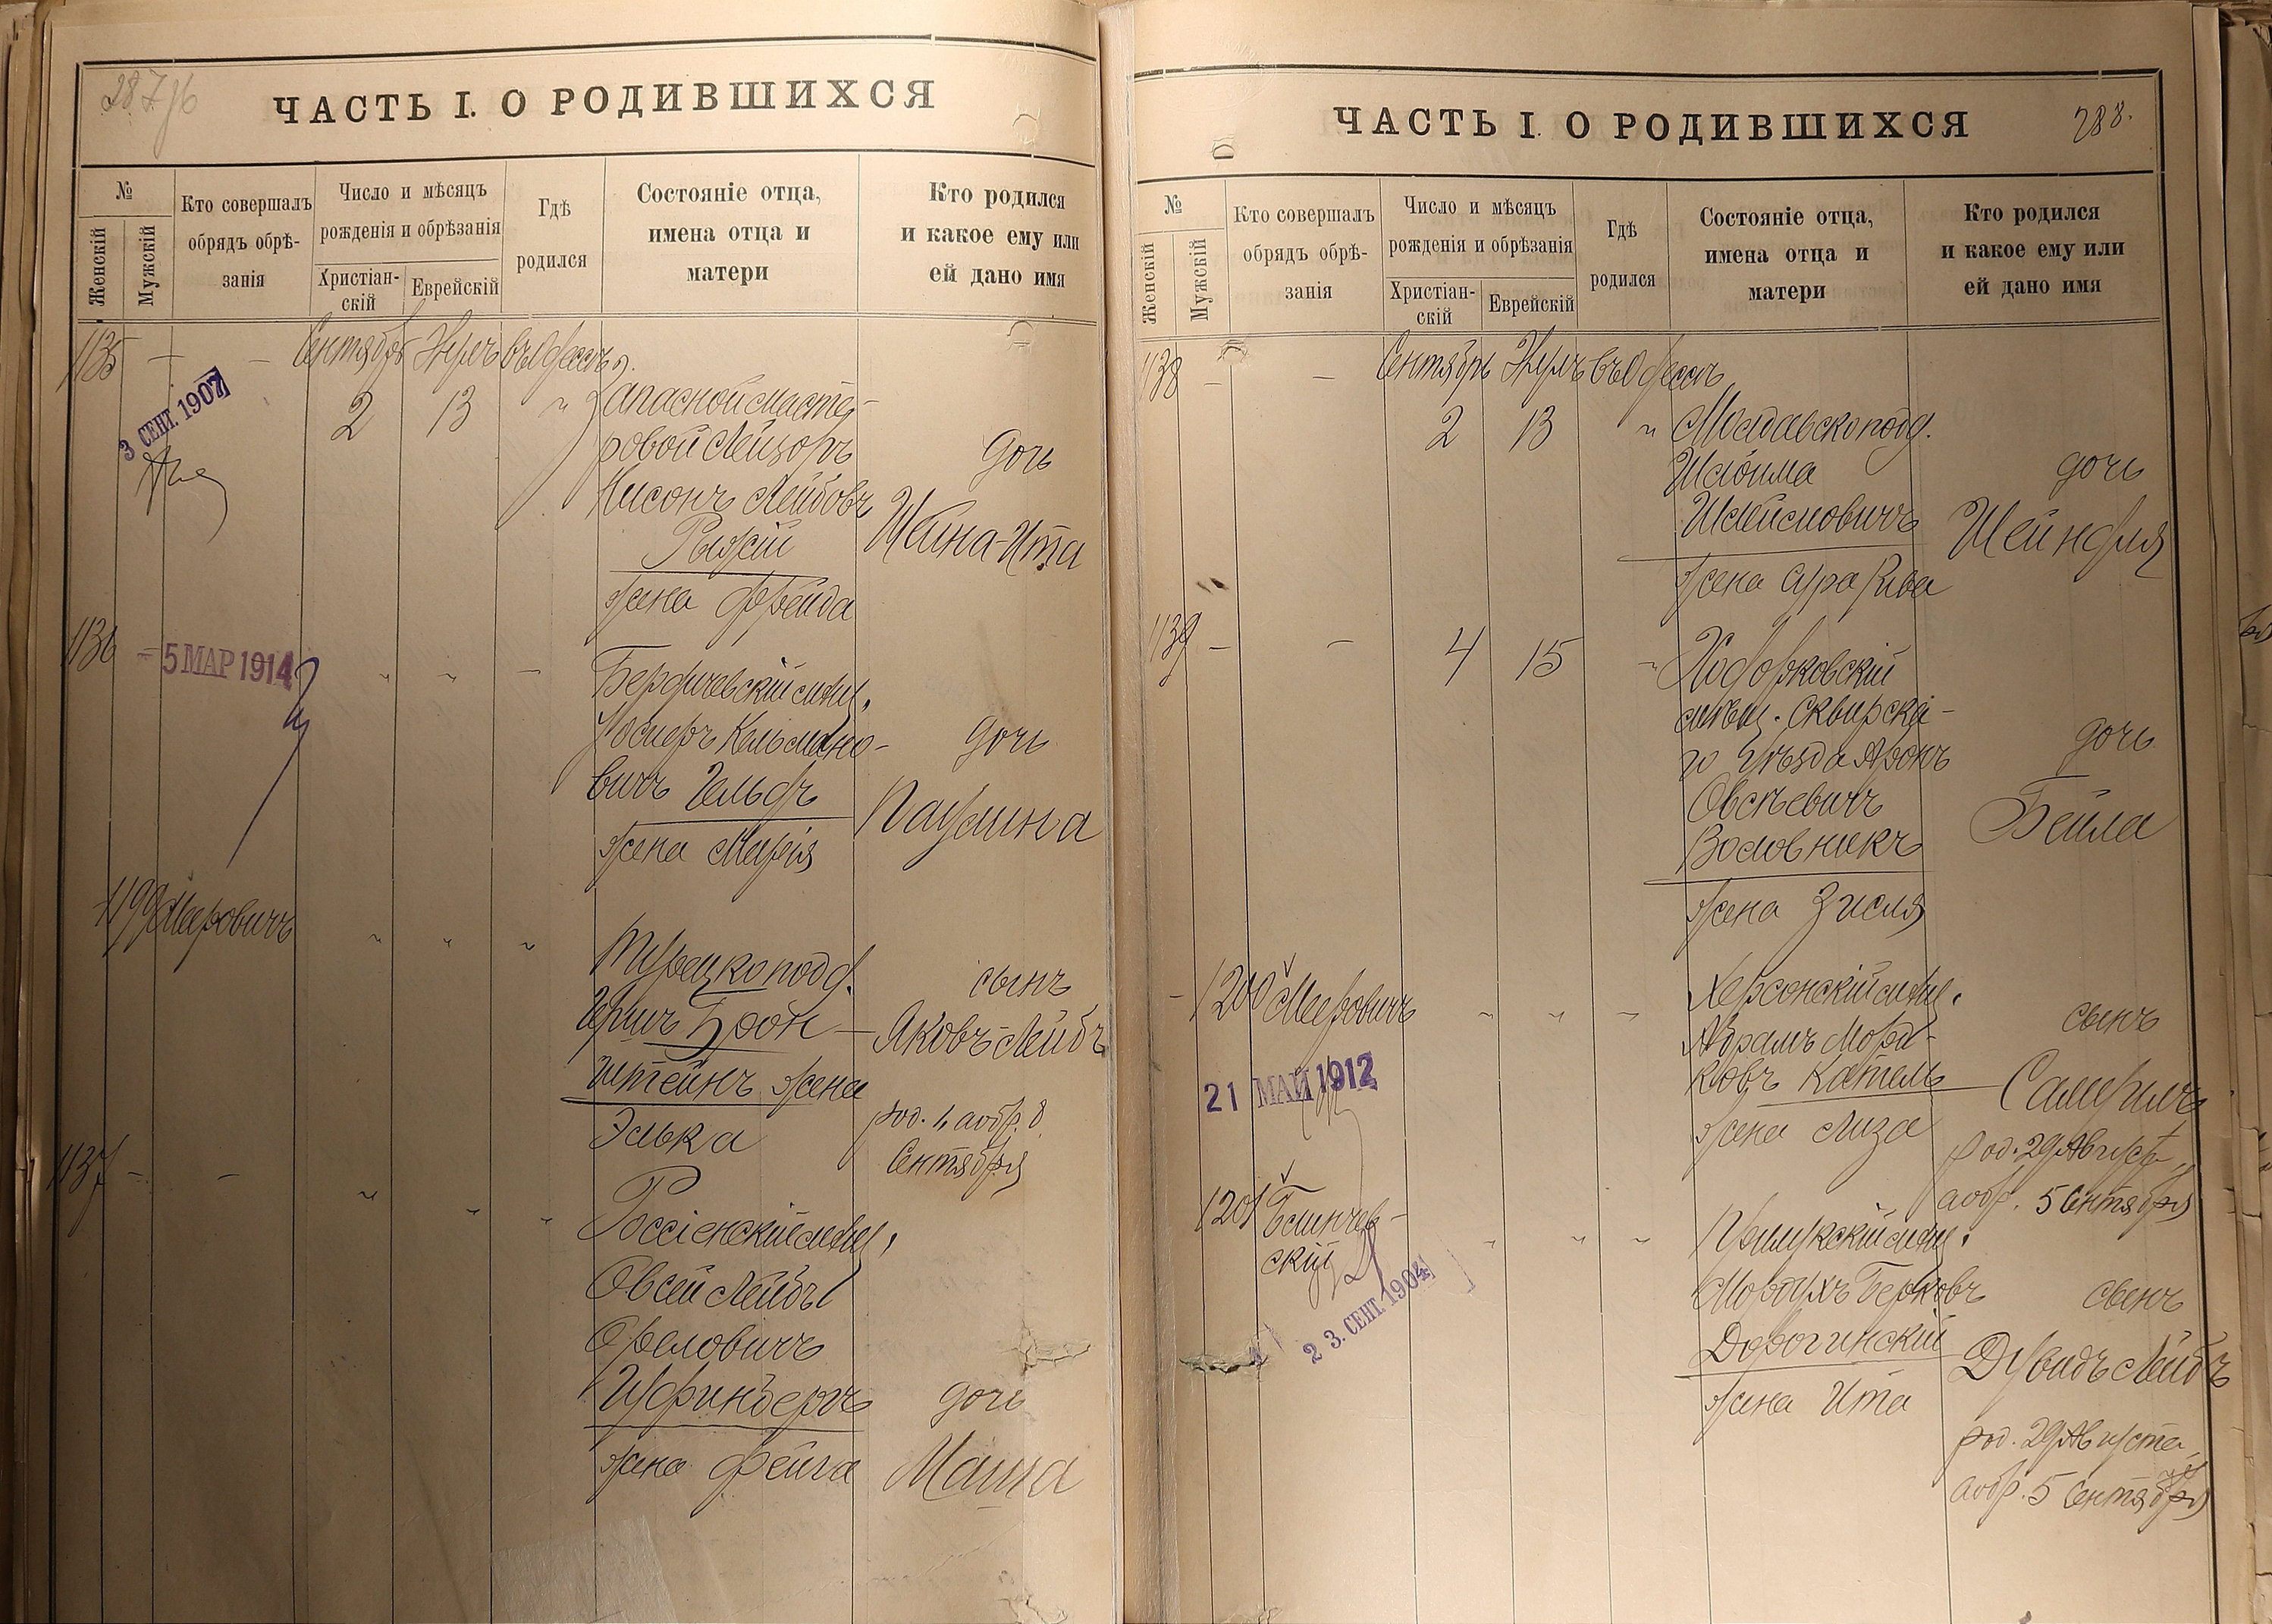 ЧАСТЬ I. О РОДИВШИХСЯ
№
Женскій
Мужскій
Кто совершалъ
обрядъ обрѣ-
занія
Число и мѣсяцъ
рожденія и обрѣзанія
Христіан-
скій
Еврейскій
Гдѣ
родился
Состояніе отца,
имена отца и
матери
Кто родился
и какое ему или
ей дано имя
1135 — — Сентябрь въ Одессѣ
3 СЕНТ. 1907
2 13 " Запасной масте-
ровой Лейзоръ
Нисонъ Лейбовъ
Рыжій
жена Фрейда
дочь
Шейна-Ита
1136 -
5 МАР 1914
Бердичевскій мѣщ.
Іосперъ Кельмано-
вичъ Гельфъ
жена Марія
дочь
Паулина
1199 Меровичъ
Турецко подд.
Гершъ Брон-
штейнъ жена
Элька
сынъ
Яковъ-Лейбъ
род. 1, а обр. 8
Сентября
1137 - -
Россіенскій мѣщ.
Овсей Лейбъ
Ореловичъ
жена Фейга
дочь
Маша
ЧАСТЬ I. О РОДИВШИХСЯ
288.
№
Женскій
Мужскій
Кто совершалъ
обрядъ обрѣ-
занія
Число и мѣсяцъ
рожденія и обрѣзанія
Христіан-
скій
Еврейскій
Гдѣ
родился
Состояніе отца,
имена отца и
матери
Кто родился
и какое ему или
ей дано имя
1138 - — Сентябрь въ Одессѣ
2 13 " Молдавско подд.
Шлоима
Шлеймовичъ
жена Сура Рива
дочь
Шейндля
1139 - - 4 15
Ходорковскій
мѣщ. Сквирска-
го Уѣзда Аронъ
Овсѣевичъ
Воловникъ
жена Зисля
дочь
Бейла
1200 Меровичъ
21 МАЙ 1912
Херсонскій мѣщ.
Абрамъ Морд-
ковъ Катель
жена Лиза
сынъ
род. 29 Августа,
а обр. 5 Сентября
1201 Блинчев-
скій
23. СЕНТ. 1904
Прилукскій мѣщ.
Мордухъ Берковъ
Дорогинскій
жена Ита
сынъ
Дувидъ Лейбъ
род. 29 Августа,
а обр. 5 Сентября